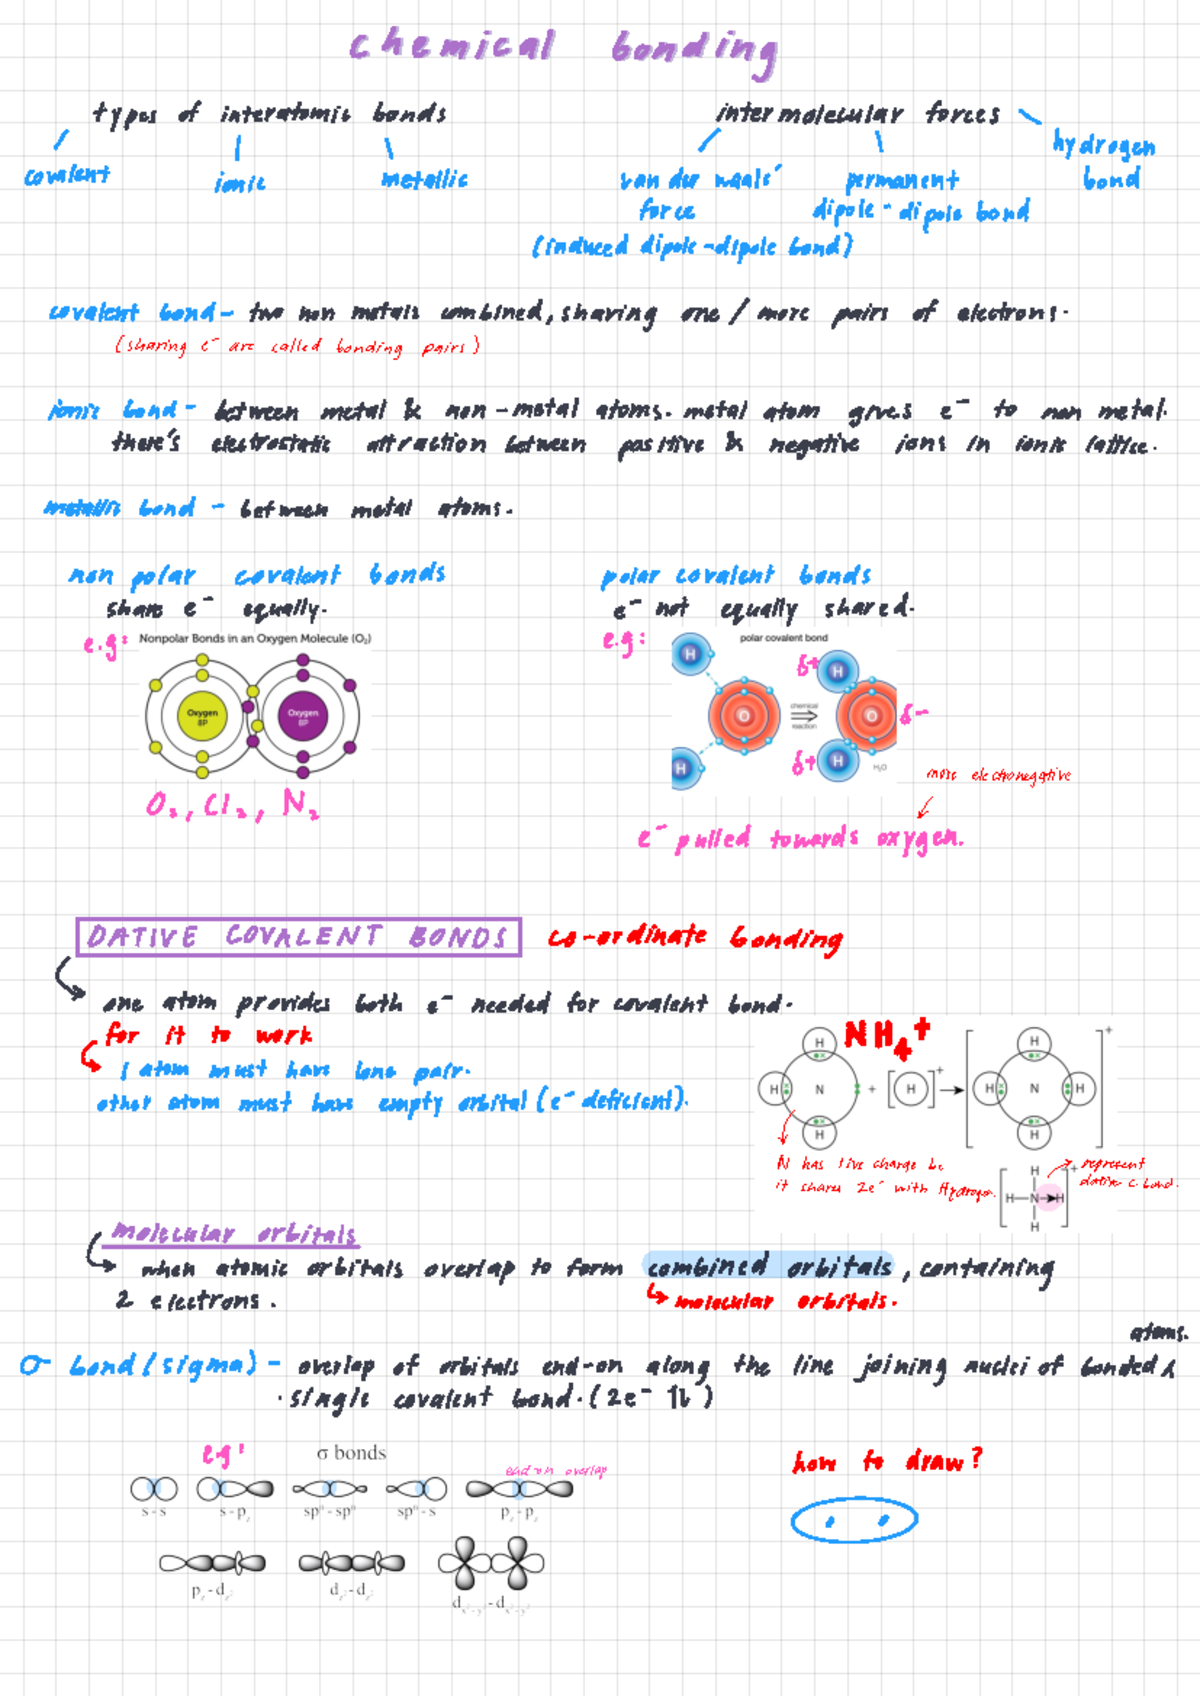 chemical bonding
types of interatomic bonds
intermolecular forces
covalent
ionic
metallic
van der waals' force
(induced dipole-dipole bond)
permanent
dipole-dipole bond
hydrogen
bond
covalent bond - two non metals combined, sharing one / more pairs of electrons.
(sharing e⁻ are called bonding pairs)
ionic bond - between metal & non-metal atoms. metal atom gives e⁻ to non metal.
there's electrostatic attraction between positive & negative ions in ionic lattice.
metallic bond - between metal atoms.
non polar covalent bonds
share e⁻ equally.
e.g:
Nonpolar Bonds in an Oxygen Molecule (O₂)
Oxygen
8P
Oxygen
8P
O₂, Cl₂, N₂
polar covalent bonds
e⁻ not equally shared.
e.g:
polar covalent bond
H
H
O
chemical
reaction
δ+ H
O δ-
δ+ H
H₂O
more electronegative
e⁻ pulled towards oxygen.
DATIVE COVALENT BONDS
co-ordinate bonding
one atom provides both e⁻ needed for covalent bond.
for it to work
1 atom must have lone pair.
other atom must have empty orbital (e⁻ deficient).
NH₄⁺
H
H N
H
+ [H]⁺
H
H N H
H
+
N has +ive charge bc
it shares 2e⁻ with Hydrogen.
H
H—N→H
H
+
represent
dative c. bond.
molecular orbitals
when atomic orbitals overlap to form combined orbitals, containing
2 electrons.
molecular orbitals.
atoms.
σ bond (sigma) - overlap of orbitals end-on along the line joining nuclei of bonded
· single covalent bond. (2e⁻ ⥮)
e.g:
σ bonds
end on overlap
s-s
s-p_z
spⁿ-spⁿ
spⁿ-s
p_z-p_z
p_z-d_z²
d_z²-d_z²
d_x²-y²-d_x²-y²
how to draw?